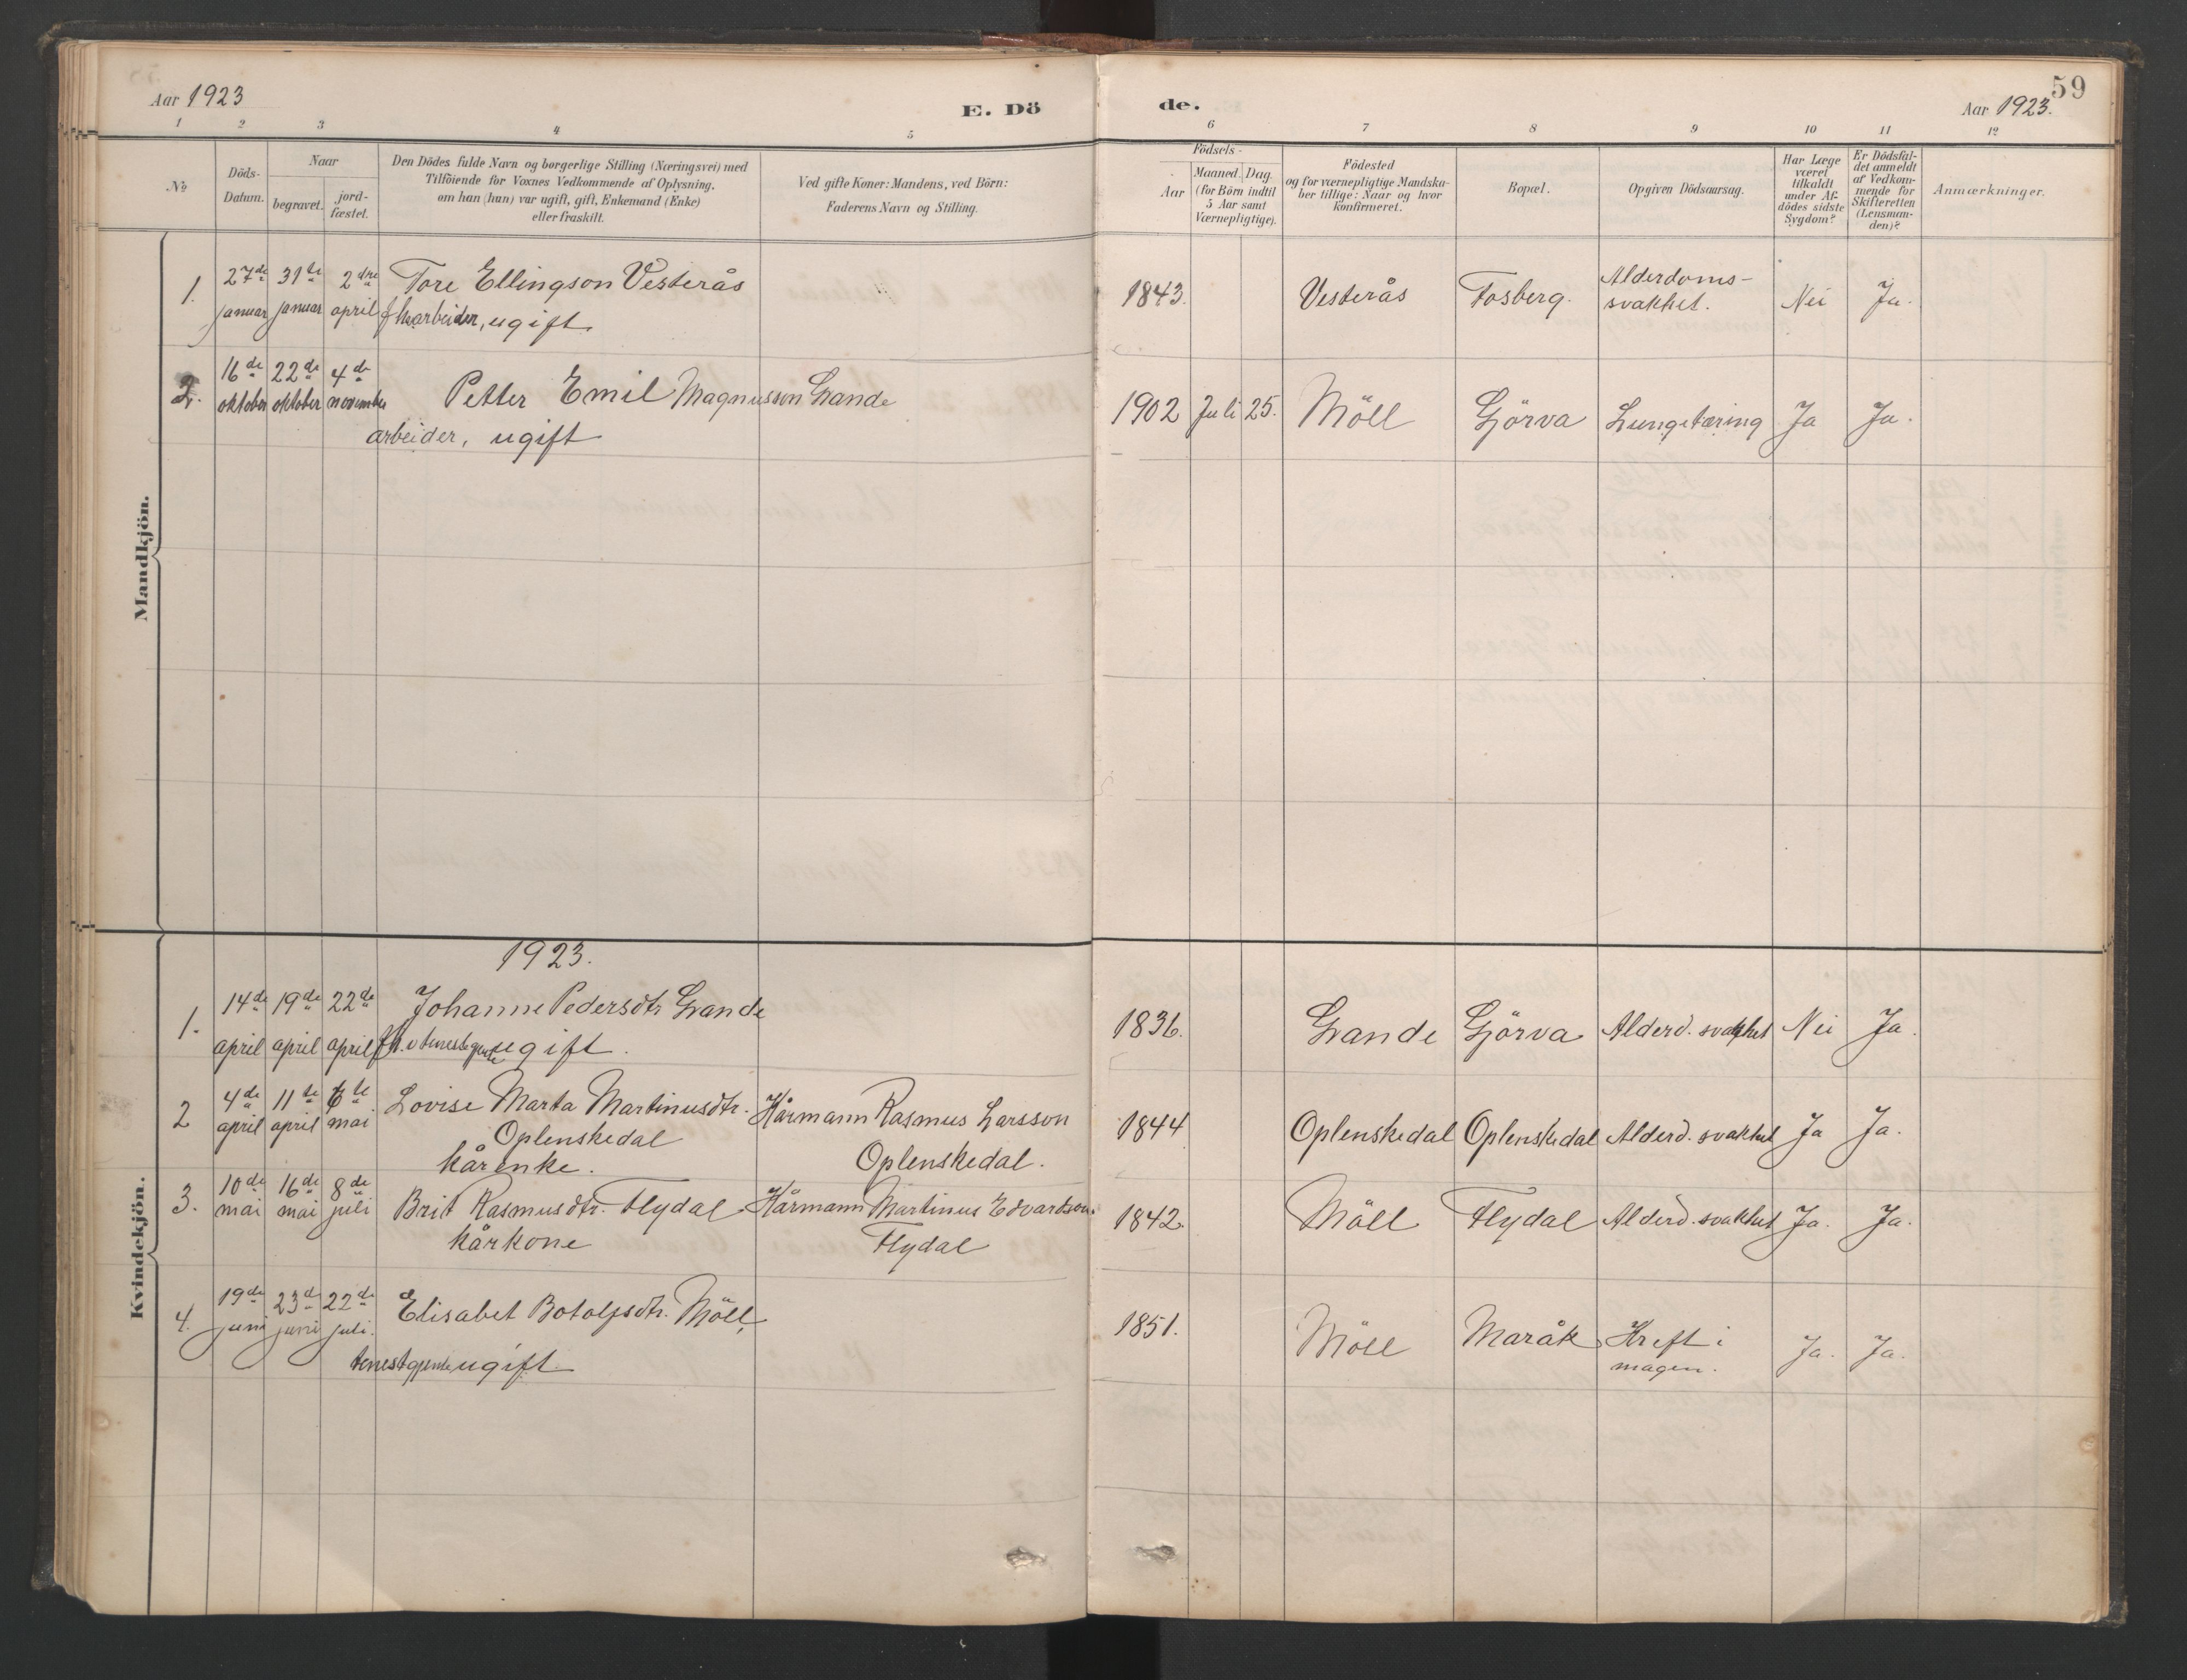 59
Aar 1923
E. Dö
de.
Aar 1923.
1 2 3 4 5 6 7 8 9 10 11 12
No
Döds-
Datum.
Naar
begravet.
jord-
fæstet.
Den Dödes fulde Navn og borgerlige Stilling (Næringsvei) med
Tilföiende for Voxnes Vedkommende af Oplysning,
om han (hun) var ugift, gift, Enkemand (Enke)
eller fraskilt.
Ved gifte Koner: Mandens, ved Börn:
Faderens Navn og Stilling.
Födsels-
Aar
Maaned. Dag.
(for Börn indtil
5 Aar samt
Værnepligtige).
Födested
og for værnepligtige Mandska-
ber tillige: Naar og hvor
konfirmeret.
Bopæl.
Opgiven Dödsaarsag.
Har Læge
været
tilkaldt
under Af-
dödes sidste
Sygdom?
Er Dödsfal-
det anmeldt
af Vedkom-
mende for
Skifteretten
(Lensman-
den)?
Anmærkninger.
Mandkjön.
1. 27de 31te 2dre Tore Ellingson Vesterås 1843. Vesterås Fosberg. Alderdoms-
januar januar april arbeider, ugift svakhet. Nei Ja.
2. 16de 22de 4de
oktober oktober november Petter Emil Magnusson Grande 1902 Juli 25. Möll Gjörva Lungetæring Ja Ja.
arbeider, ugift
Kvindekjön.
1923.
1. 14de 19de 22de Johanne Pedersdtr Grande 1836. Grande Gjörva Alderd. svakhet Nei Ja.
april april april ugift.
2 4de 11te 6te Lovise Marta Martinusdtr. Kårmann Rasmus Larsson 1844 Oplenskedal Oplenskedal Alderd. svakhet Ja Ja.
april april mai Oplenskedal Oplenskedal.
kårenke.
3. 10de 16de 8de
mai mai juli Brit Rasmusdtr. Flydal Kårmann Martinus Edvardson. 1842. Möll Flydal Alderd. svakhet Ja. Ja.
kårkone Flydal
4. 19de 23de 22de Elisabet Botolfsdtr. Möll, 1851. Möll Maråk Kreft i Ja. Ja.
juni juni juli. magen.
tenestgjente ugift.